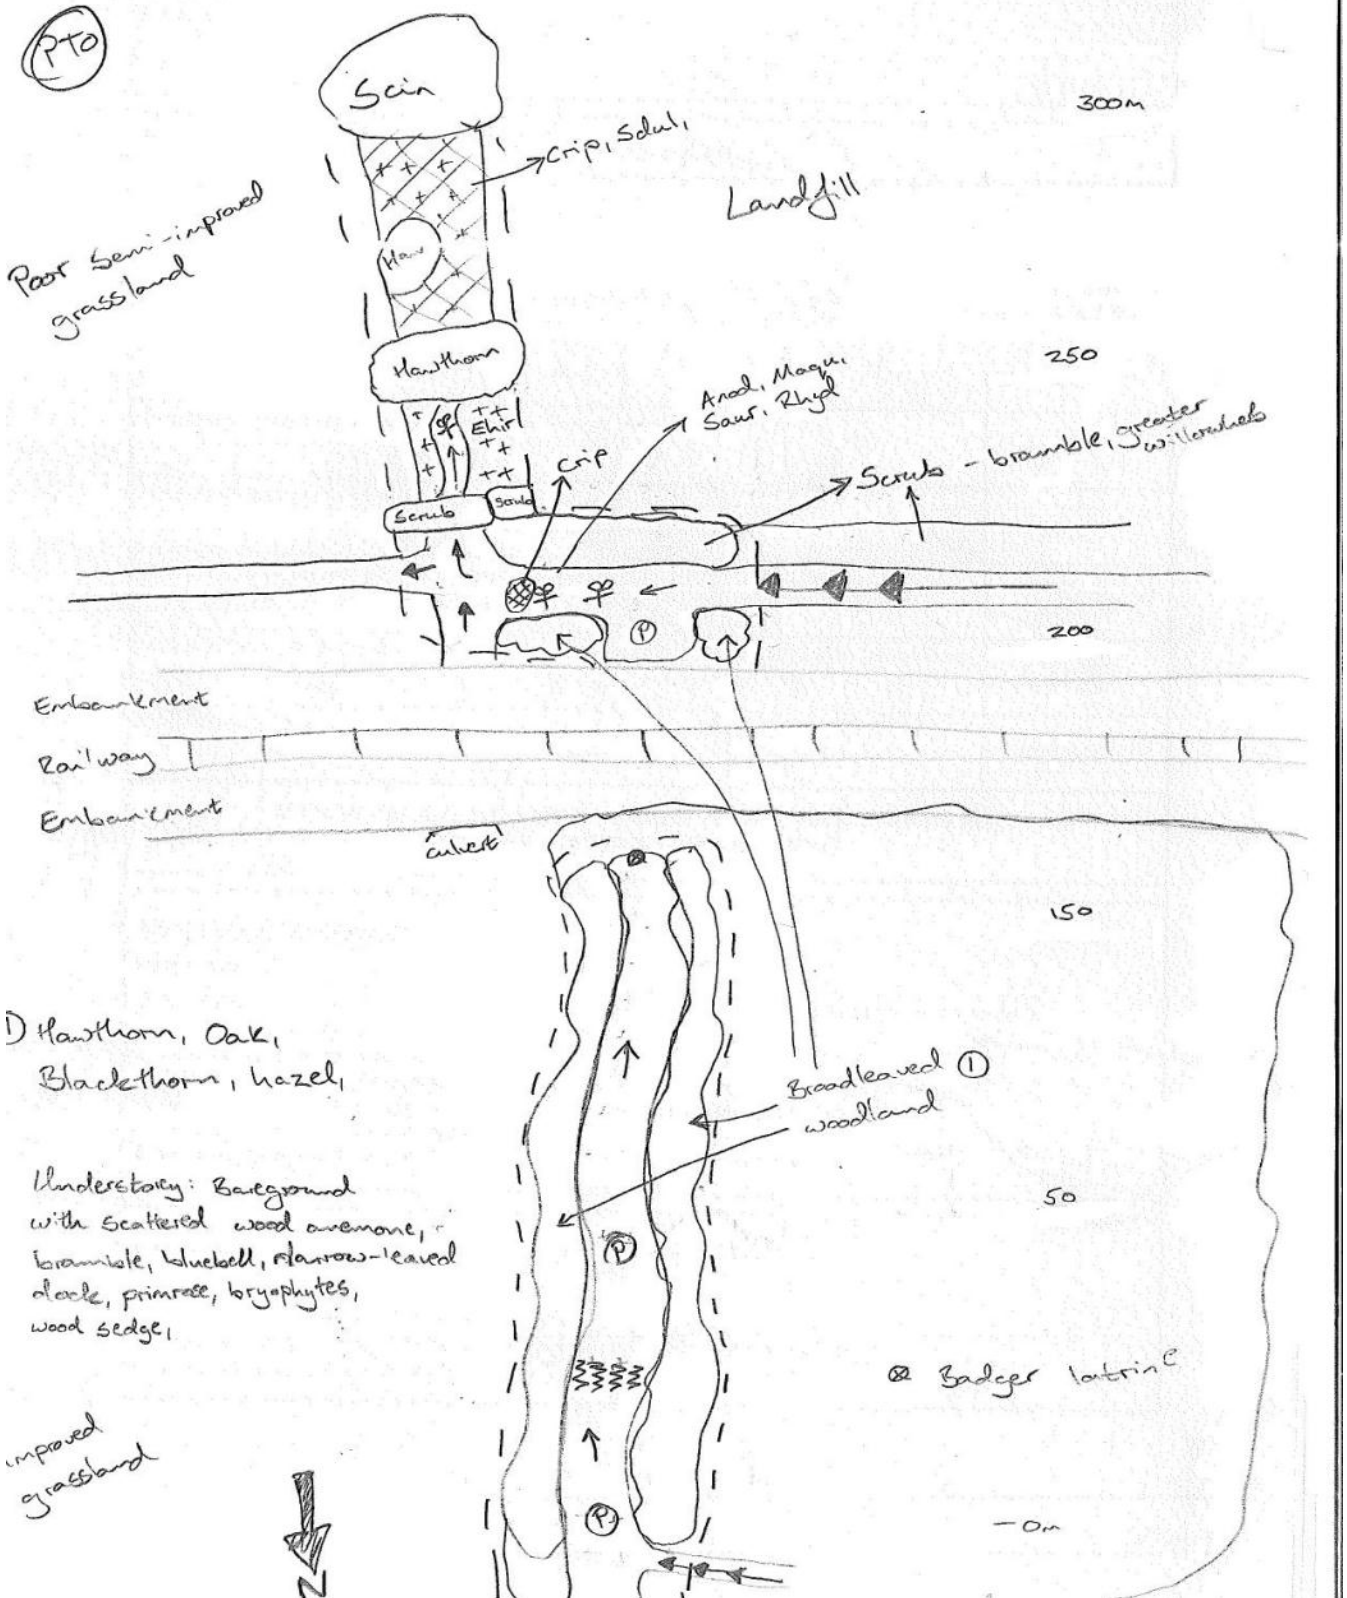 PTO
Scin
300m
Crip, Sdul,
Landfill
Poor Semi-improved
grassland
Haw
Hawthorn
250
Anod, Maqu,
Saur, Rhyd
Ehir
Crip
Scrub - bramble, greater
willowherb
Scrub
Scrub
P
200
Embankment
Railway
Embankment
culvert
150
1) Hawthorn, Oak,
Blackthorn, hazel,
Broadleaved 1
woodland
Understorey: Bareground
with scattered wood anemone,
bramble, bluebell, Narrow-leaved
dock, primrose, bryophytes,
wood sedge,
50
P
Badger latrine
improved
grassland
P
-0m
N